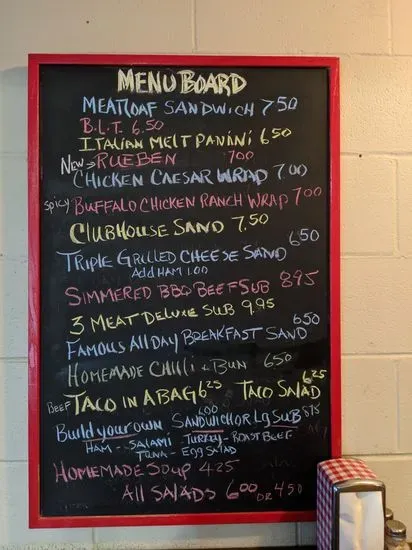 MENU BOARD
MEATLOAF SANDWICH 7.50
B.L.T. 6.50
ITALIAN MELT PANINI 6.50
NEW → RUEBEN 7.00
CHICKEN CAESAR WRAP 7.00
Spicy BUFFALO CHICKEN RANCH WRAP 7.00
CLUBHOUSE SAND 7.50
TRIPLE GRILLED CHEESE SAND 6.50
ADD HAM 1.00
SIMMERED BBQ BEEF SUB 8.95
3 MEAT DELUXE SUB 9.95
FAMOUS ALL DAY BREAKFAST SAND 6.50
HOMEMADE CHILI + BUN 6.50
BEEF TACO IN A BAG 6.25 TACO SALAD 6.25
Build your own SANDWICH 6.00 OR Lg SUB 8.75
HAM - SALAMI - TURKEY - ROAST BEEF
TUNA - EGG SALAD
HOMEMADE SOUP 4.25
ALL SALADS 6.00 OR 4.50